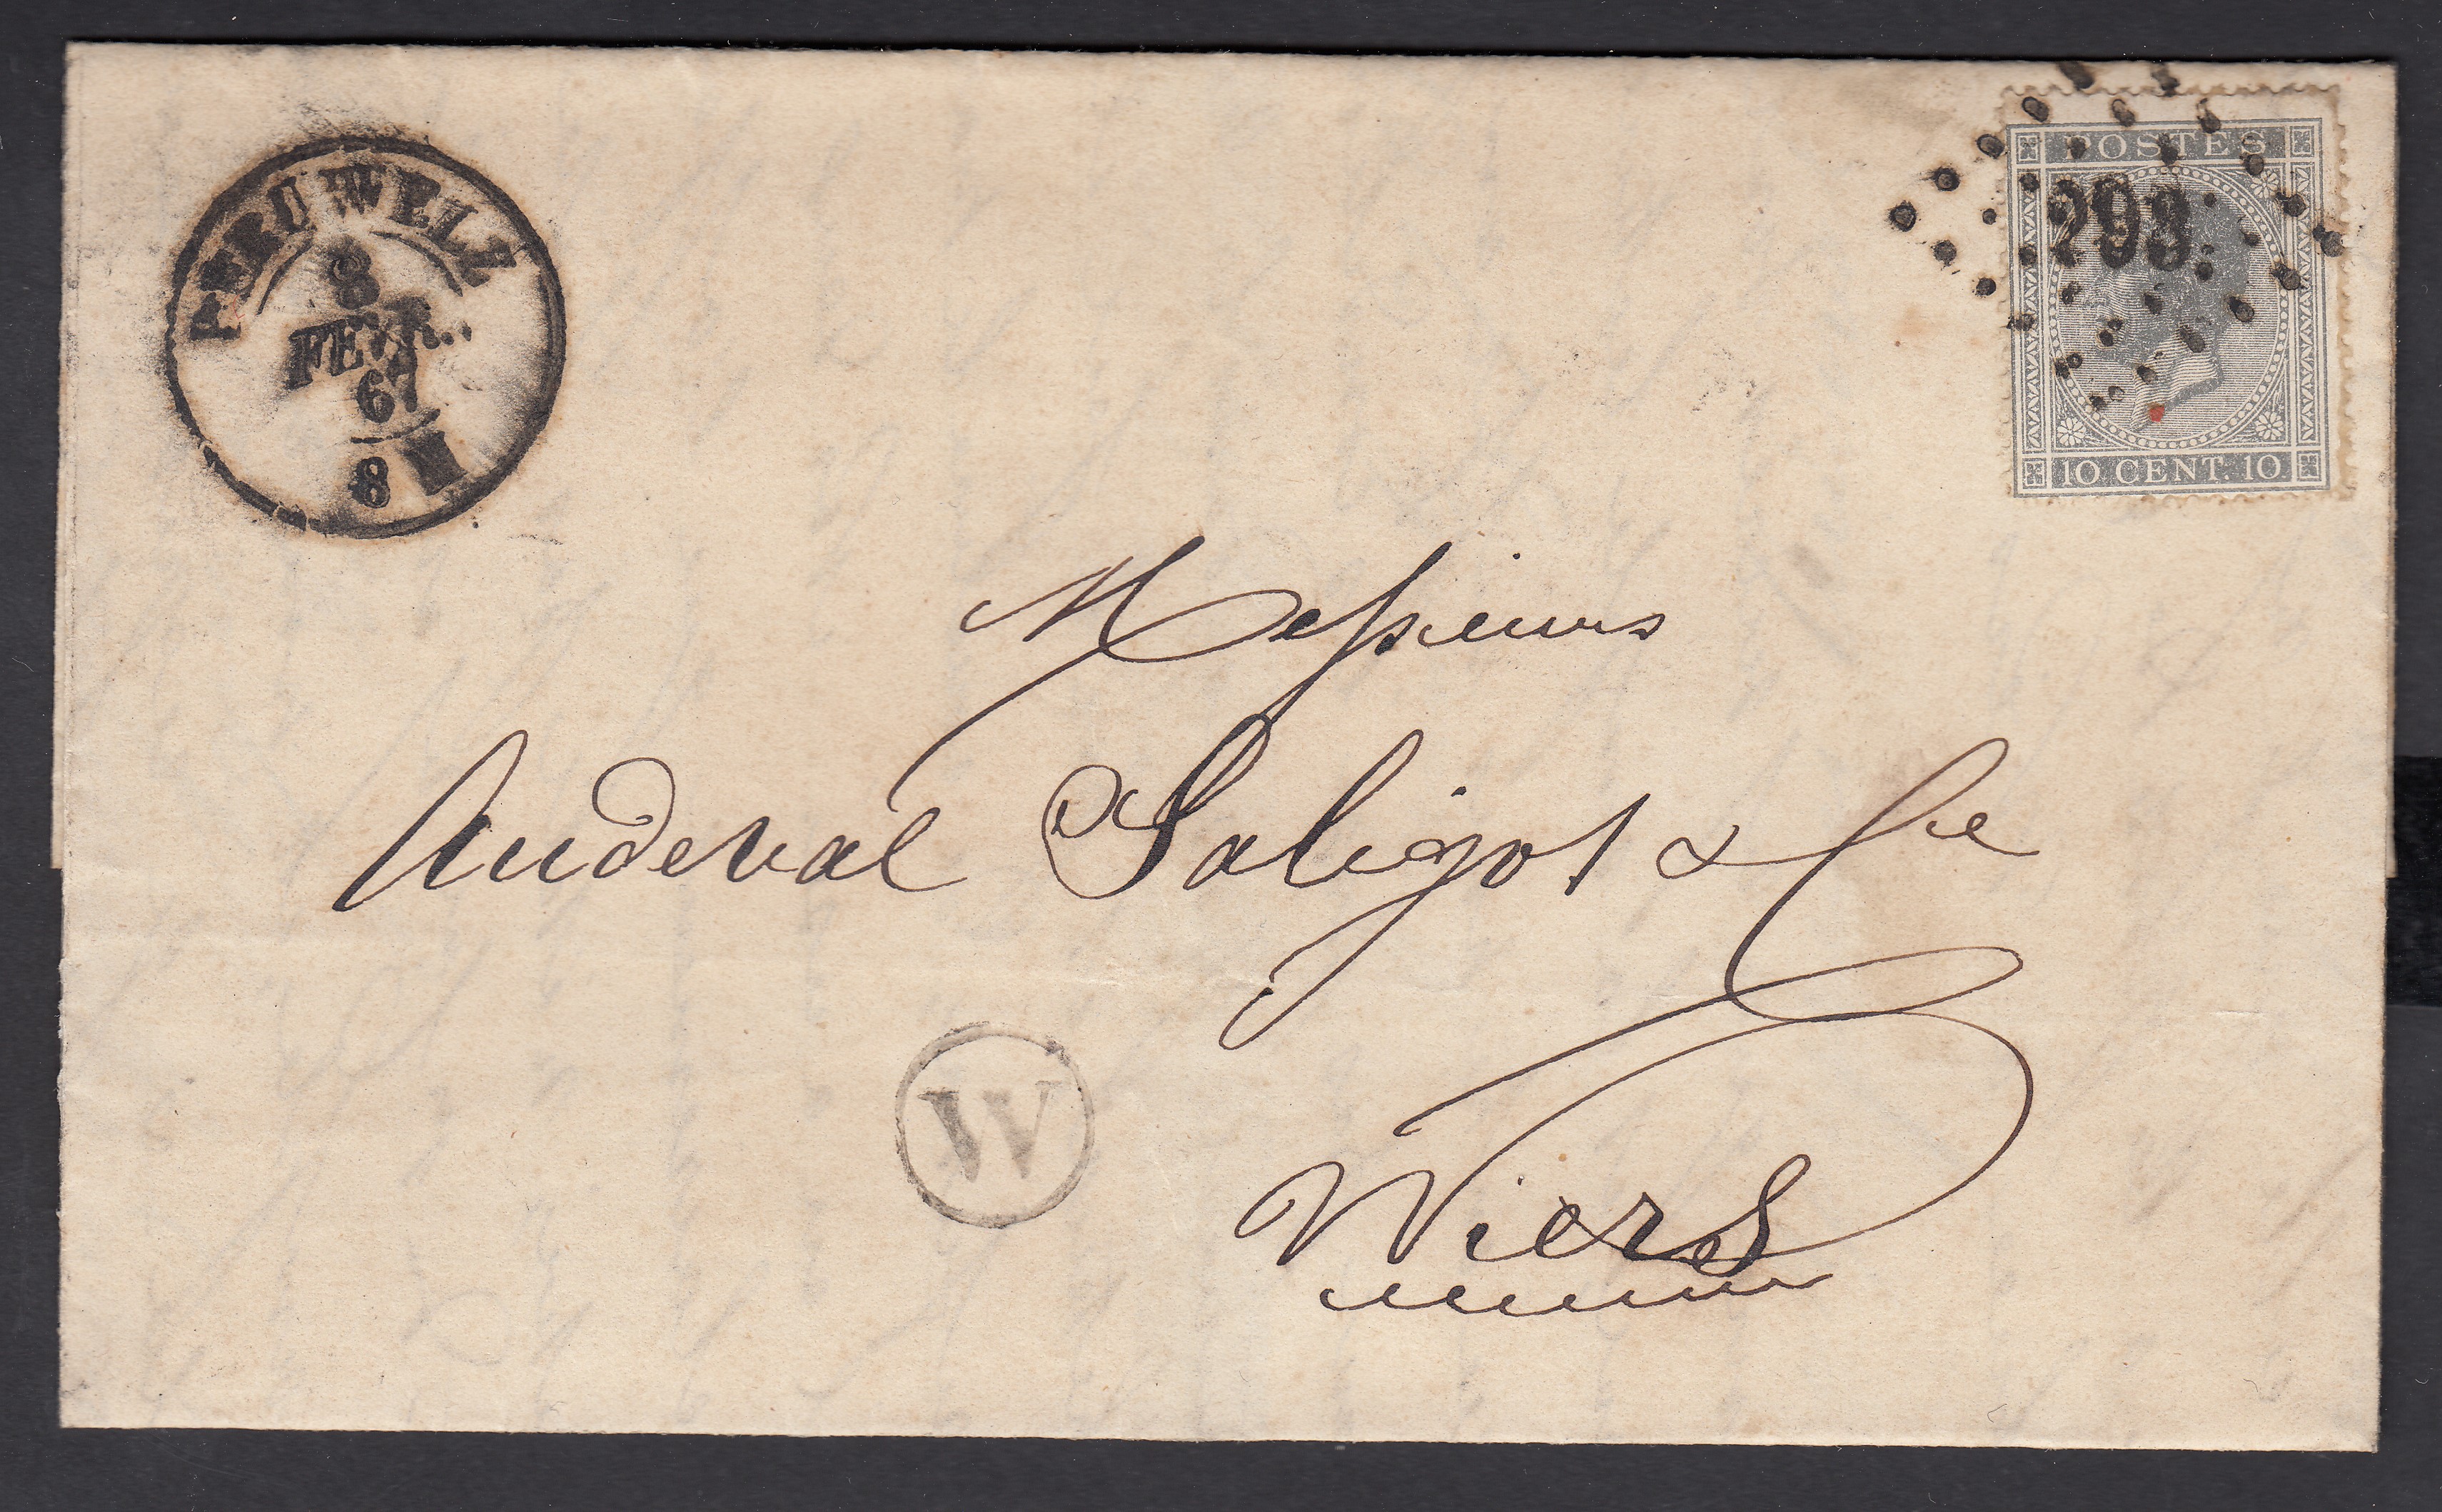 PERUWELZ
8
FEVR.
67
8 M
POSTES
293
10 CENT. 10
Messieurs
Audeval Saligot & Cie
W
Wiers